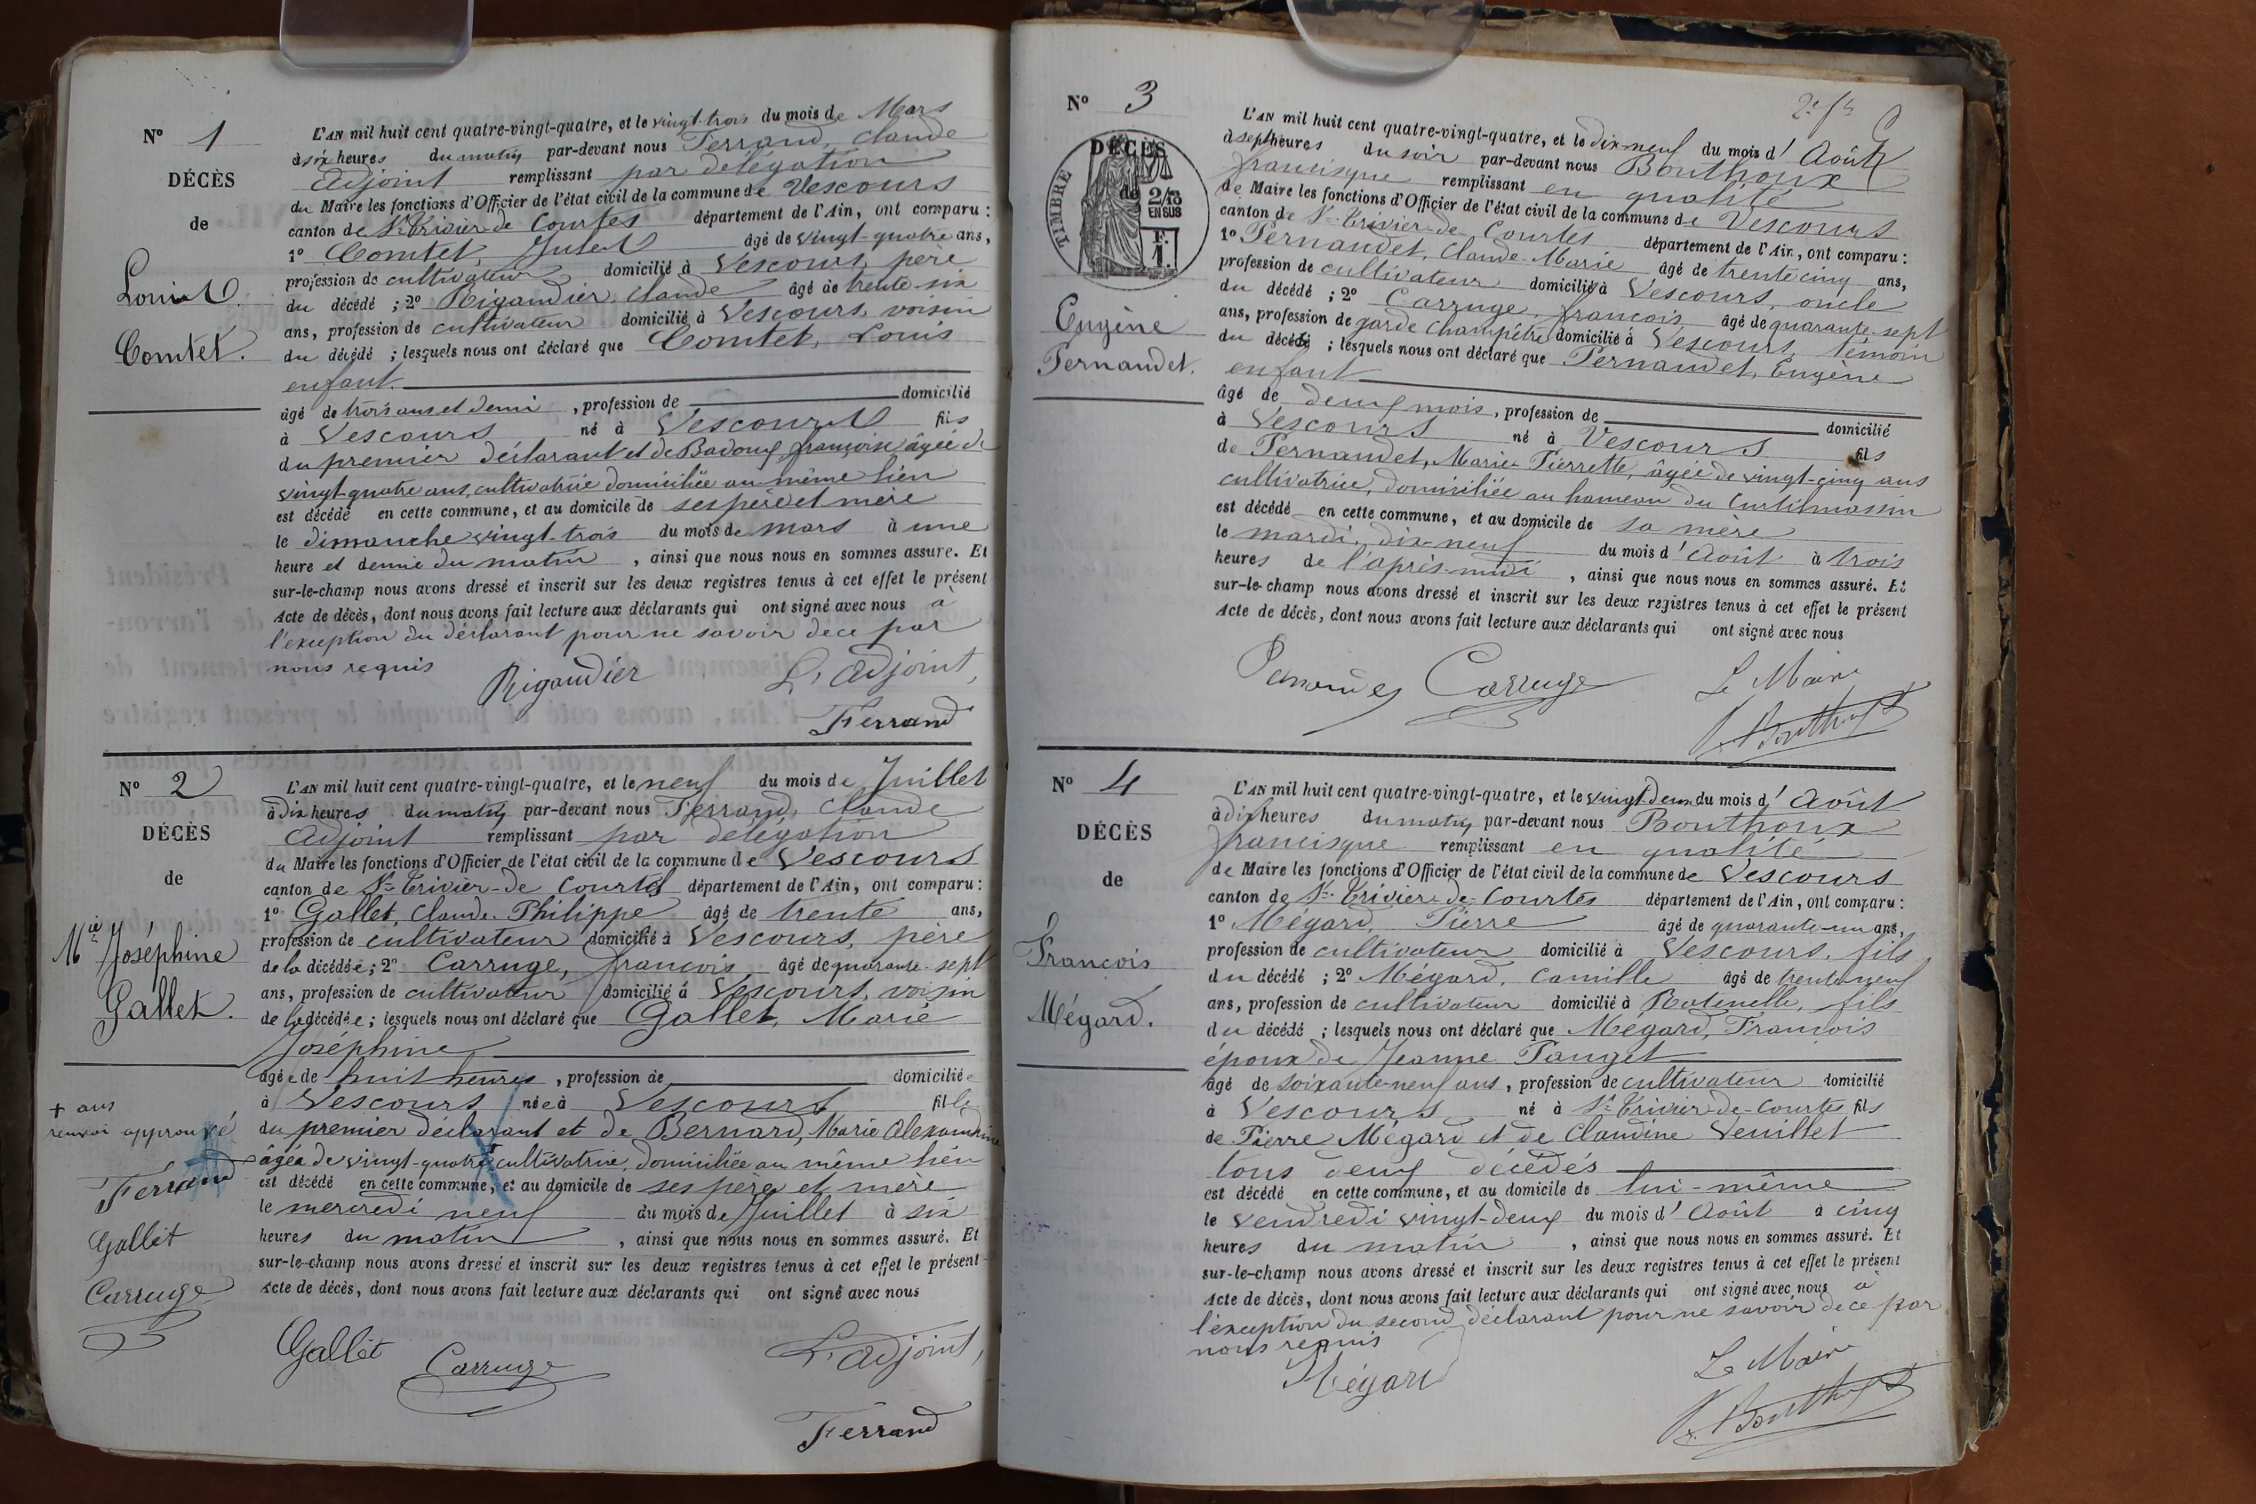 N° 1
DÉCÈS
de
Louis
Comtet.
L'AN mil huit cent quatre-vingt-quatre, et le vingt-trois du mois de Mars
à six heures du matin par-devant nous Ferrand, Claude
Adjoint remplissant par délégation
du Maire les fonctions d'Officier de l'état civil de la commune de Vescours
canton de St Trivier de Courtes département de l'Ain, ont comparu :
1° Comtet, Jules âgé de vingt-quatre ans,
profession de cultivateur domicilié à Vescours, père
du décédé ; 2° Rigaudier, Claude âgé de trente-six
ans, profession de cultivateur domicilié à Vescours, voisin
du décédé ; lesquels nous ont déclaré que Comtet, Louis
enfant
âgé de trois ans et demi , profession de domicilié
à Vescours né à Vescours fils
du premier déclarant et de Badoux françoise âgée de
vingt-quatre ans, cultivatrice domiciliée au même lieu
est décédé en cette commune, et au domicile de ses père et mère
le dimanche vingt-trois du mois de mars à une
heure et demie du matin , ainsi que nous nous en sommes assuré. Et
sur-le-champ nous avons dressé et inscrit sur les deux registres tenus à cet effet le présent
Acte de décès, dont nous avons fait lecture aux déclarants qui ont signé avec nous à
l'exception du déclarant pour ne savoir de ce par
nous requis
Rigaudier L'adjoint,
Ferrand
N° 2
DÉCÈS
de
Mie Joséphine
Gallet.
L'AN mil huit cent quatre-vingt-quatre, et le neuf du mois de Juillet
à dix heures du matin par-devant nous Ferrand, Claude
Adjoint remplissant par délégation
du Maire les fonctions d'Officier de l'état civil de la commune de Vescours
canton de St Trivier-de Courtes département de l'Ain, ont comparu :
1° Gallet, Claude Philippe âgé de trente ans,
profession de cultivateur domicilié à Vescours, père
de la décédée ; 2° Carruge, françois âgé de quarante-sept
ans, profession de cultivateur domicilié à Vescours, voisin
de la décédée ; lesquels nous ont déclaré que Gallet, Marie
Joséphine
âgée de huit heures , profession de domiciliée
à Vescours née à Vescours fille
du premier déclarant et de Bernard, Marie Alexandrine
âgée de vingt-quatre + cultivatrice, domiciliée au même lieu
est décédé en cette commune, et au domicile de ses père et mère
le mercredi neuf du mois de Juillet à six
heures du matin , ainsi que nous nous en sommes assuré. Et
sur-le-champ nous avons dressé et inscrit sur les deux registres tenus à cet effet le présent
Acte de décès, dont nous avons fait lecture aux déclarants qui ont signé avec nous
+ ans
renvoi approuvé
Ferrand
Gallet
Carruge
Gallet Carruge L'adjoint,
Ferrand
2e fe
N° 3
TIMBRE
DÉCÈS
de 2/13
EN SUS
F.
1.
Eugène
Pernaudet.
L'AN mil huit cent quatre-vingt-quatre, et le dix-neuf du mois d'Août
à sept heures du soir par-devant nous Bouthoux
francisque remplissant en qualité
de Maire les fonctions d'Officier de l'état civil de la commune de Vescours
canton de St Trivier-de-Courtes département de l'Ain, ont comparu :
1° Pernaudet, Claude-Marie âgé de trente cinq ans,
profession de cultivateur domicilié à Vescours, oncle
du décédé ; 2° Carruge, françois âgé de quarante-sept
ans, profession de garde champêtre domicilié à Vescours, témoin
du décédé ; lesquels nous ont déclaré que Pernaudet, Eugène
enfant
âgé de deux mois , profession de domicilié
à Vescours né à Vescours fils
de Pernaudet, Marie Pierrette, âgée de vingt-cinq ans
cultivatrice, domiciliée au hameau du Curtilmassin
est décédé en cette commune, et au domicile de sa mère
le mardi, dix-neuf du mois d'Août à trois
heures de l'après-midi , ainsi que nous nous en sommes assuré. Et
sur-le-champ nous avons dressé et inscrit sur les deux registres tenus à cet effet le présent
Acte de décès, dont nous avons fait lecture aux déclarants qui ont signé avec nous
Carruge Le Maire
Bouthoux
N° 4
DÉCÈS
de
François
Mégard.
L'AN mil huit cent quatre-vingt-quatre, et le vingt deux du mois d'Août
à dix heures du matin par-devant nous Bouthoux
francisque remplissant en qualité
de Maire les fonctions d'Officier de l'état civil de la commune de Vescours
canton de St Trivier-de-Courtes département de l'Ain, ont comparu :
1° Mégard, Pierre âgé de quarante-un ans,
profession de cultivateur domicilié à Vescours, fils
du décédé ; 2° Mégard, Camille âgé de trente neuf
ans, profession de cultivateur domicilié à Ratenelle, fils
du décédé ; lesquels nous ont déclaré que Mégard, François
époux de Jeanne Panget
âgé de soixante-neuf ans , profession de cultivateur domicilié
à Vescours né à St Trivier-de-Courtes fils
de Pierre Mégard et de Claudine Veuillet
tous deux décédés
est décédé en cette commune, et au domicile de lui-même
le vendredi vingt-deux du mois d'Août à cinq
heures du matin , ainsi que nous nous en sommes assuré. Et
sur-le-champ nous avons dressé et inscrit sur les deux registres tenus à cet effet le présent
Acte de décès, dont nous avons fait lecture aux déclarants qui ont signé avec nous à
l'exception du second déclarant pour ne savoir de ce par
nous requis
Mégard Le Maire
Bouthoux